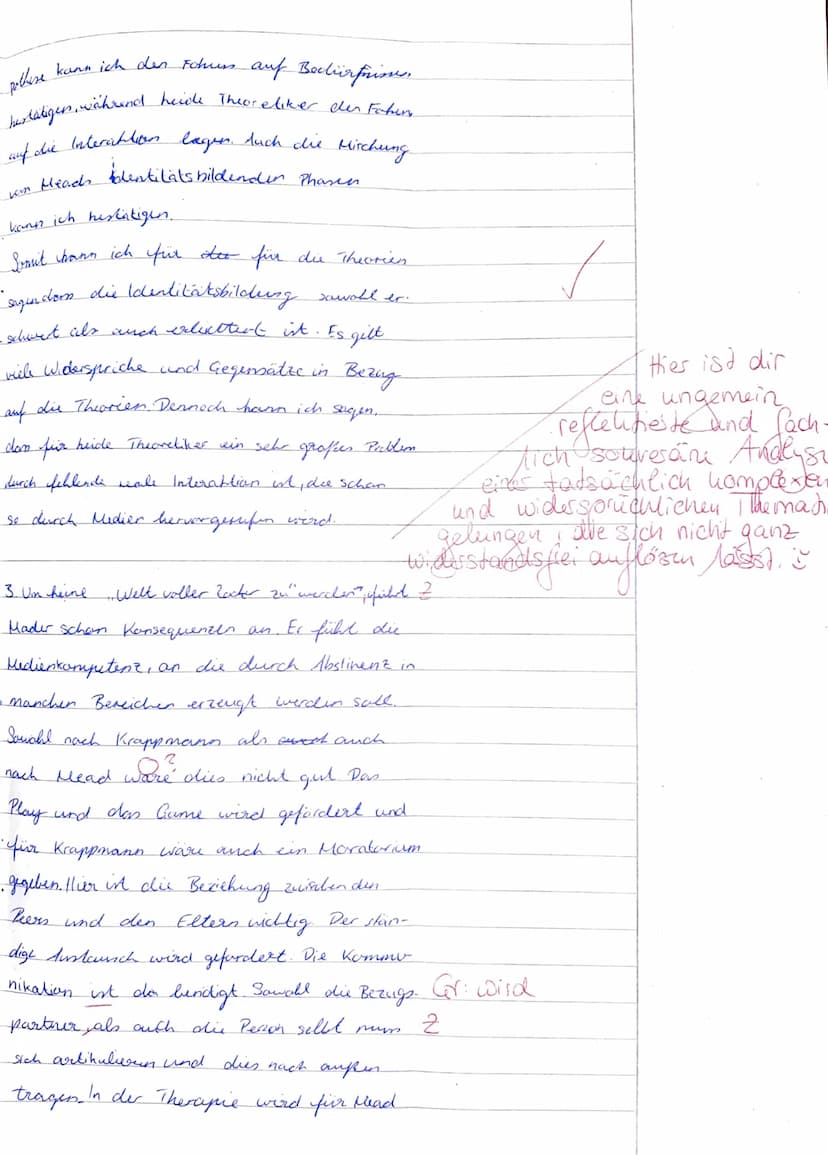 kann ich den Fokus auf Bedürfnisse
bestätigen, während beide Theoretiker den Fokus
auf die Interaktion legen. Auch die Mischung
von Meads Identitätsbildenden Phasen
kann ich bestätigen.
Somit kann ich für die für die Theorien
sagen dass die Identitätsbildung sowohl er-
schwert als auch erleichtert ist. Es gibt
viele Widersprüche und Gegensätze in Bezug
auf die Theorien. Dennoch kann ich sagen,
dass für beide Theoretiker ein sehr großes Problem
durch fehlende reale Interaktion ist, die schon
so durch Medien hervorgerufen wird.
Hier ist dir
eine ungemein
reflektierte und fach-
lich souveräne Analyse
einer tatsächlich komplexen
und widersprüchlichen Thematik
gelungen, die sich nicht ganz
widerstandsfrei auflösen lässt. :)
3. Um keine „Welt voller zu werden", führt Z
Mader schon Konsequenzen an. Er führt die
Medienkompetenz, an die durch Abstinenz in
manchen Bereichen erzeugt werden soll.
Sowohl nach Krappmann als auch
nach Mead wäre ? dies nicht gut. Das
Play und das Game wird gefördert und
für Krappmann wäre auch ein Moratorium
gegeben. Hier ist die Beziehung zwischen den
Peers und den Eltern wichtig. Der stän-
dige Austausch wird gefordert. Die Kommu-
nikation ist da Gr: wird
partner, als auch die Person selbt muss Z
sich artikulieren und dies nach außen
tragen. In der Therapie wird für Mead